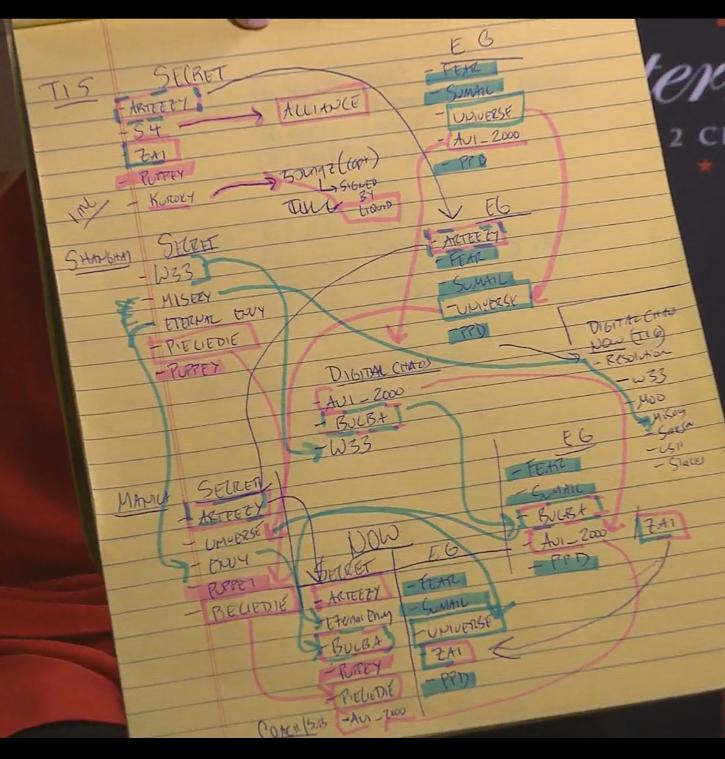 TI5
SECRET
- ARTEEZY
- S4
ZAI
- PUPPEY
- KUROKY
ALLIANCE
5UNGZ (COPT)
SIGNED
BY
LIQUID
EG
- FEAR
- SUMAIL
- UNIVERSE
- AUI_2000
- PPD
EG
- ARTEEZY
- FEAR
- SUMAIL
- UNIVERSE
- PPD
SHANGHAI
SECRET
- W33
- MISERY
- ETERNAL ENVY
- PIELIEDIE
- PUPPEY
DIGITAL CHAOS
- AUI_2000
- BULBA
- W33
DIGITAL CHAOS
NOW (TI6)
- Resolution
- W33
- MOO
- Misery
- Saksa
MANILA
SECRET
- ARTEEZY
- UNIVERSE
- ENVY
- PUPPEY
- PIELIEDIE
EG
- FEAR
- SUMAIL
- BULBA
- AUI_2000
- PPD
ZAI
NOW
SECRET
- ARTEEZY
- Eternal Envy
- BULBA
- PUPPEY
- PIELIEDIE
COACH/SUB - AUI_2000
EG
- FEAR
- SUMAIL
- UNIVERSE
ZAI
- PPD
ter
2 C